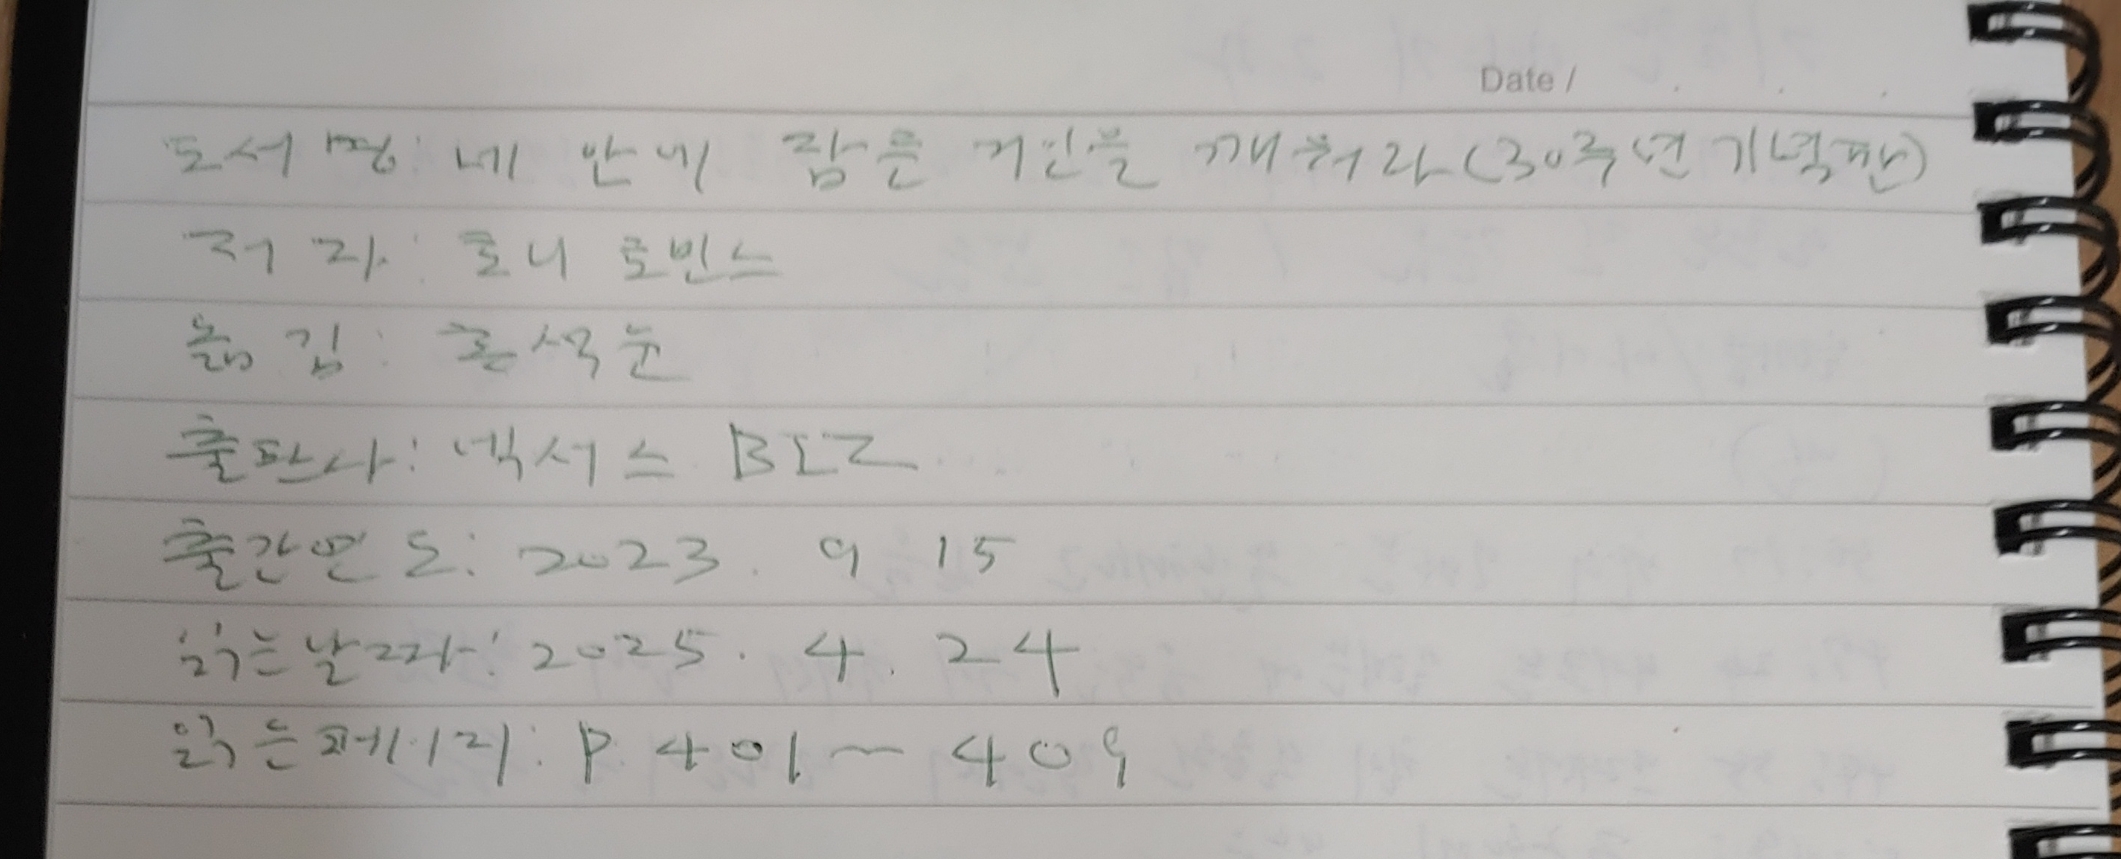 Date /
도서명: 네 안에 잠든 거인을 깨워라(30주년기념판)
저자: 토니 로빈스
옮김: 홍석윤
출판사: 넥서스 BIZ
출간연도: 2023. 9 15
읽는날짜: 2025. 4. 24
읽는페이지: P 401~409